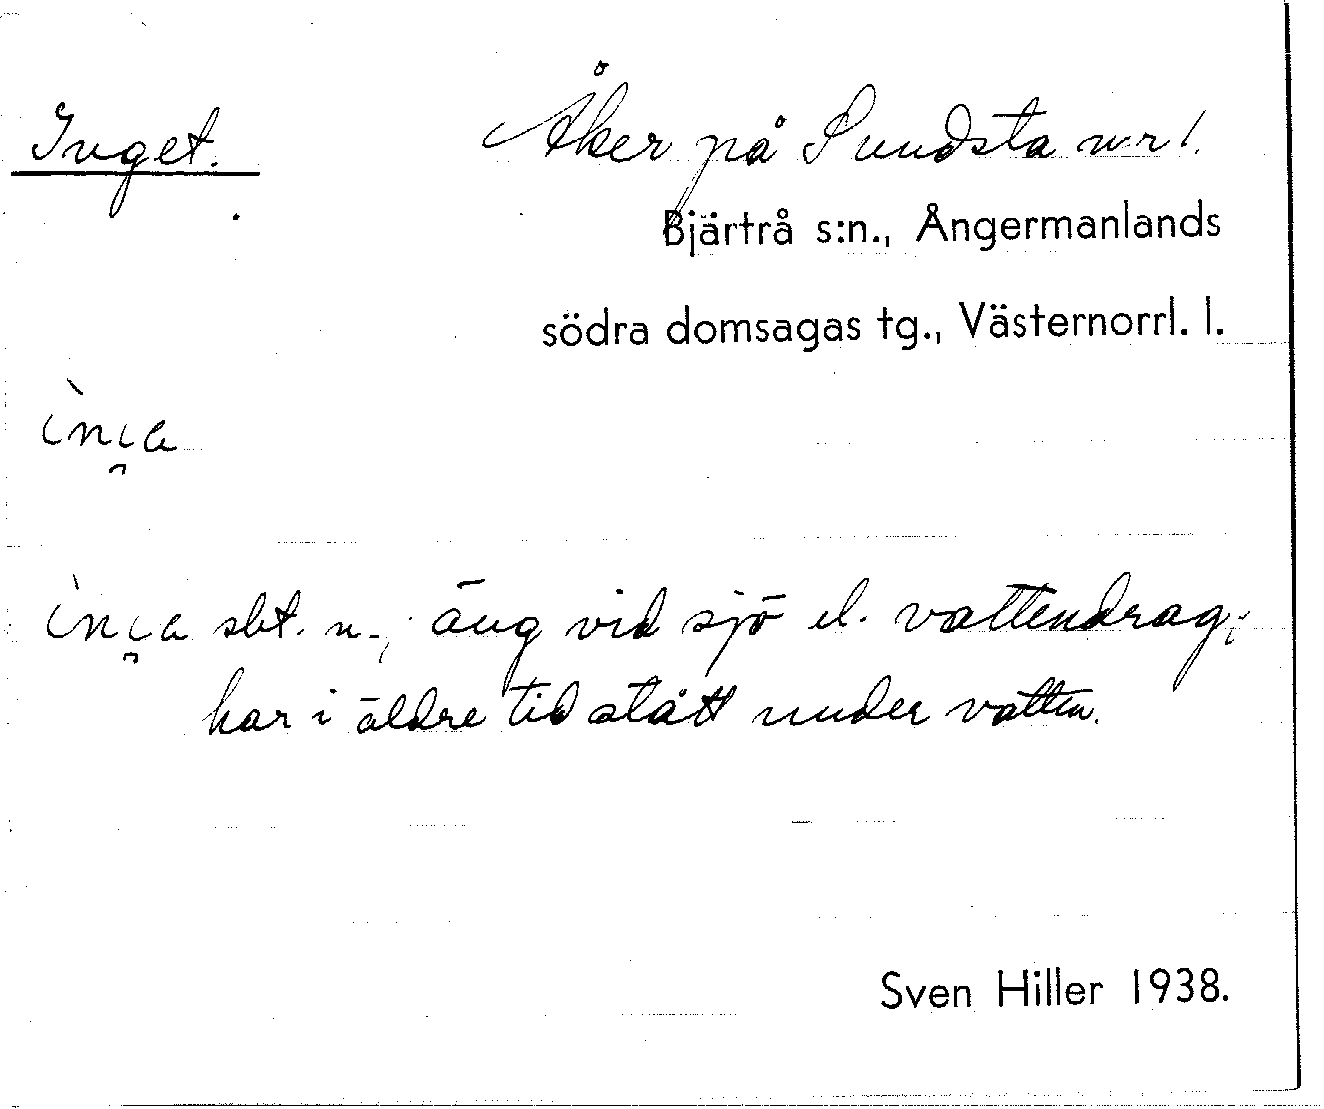 Inget.
Åker på Sundsta nr 1.
Bjärtrå s:n., Ångermanlands
södra domsagas tg., Västernorrl. l.
sbt. n., äng vid sjö el. vattendrag,
har i äldre tid stått under vatten.
Sven Hiller 1938.